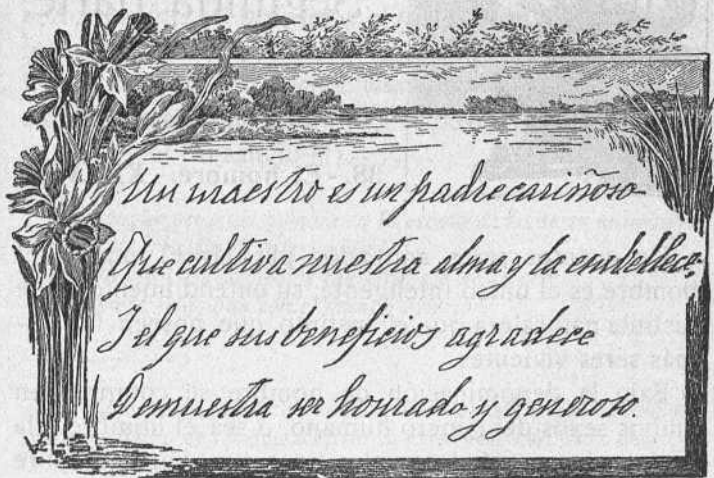 Un maestro es un padre cariñoso
Que cultiva nuestra alma y la embellece,
I el que sus beneficios agradece
Demuestra ser honrado y generoso.